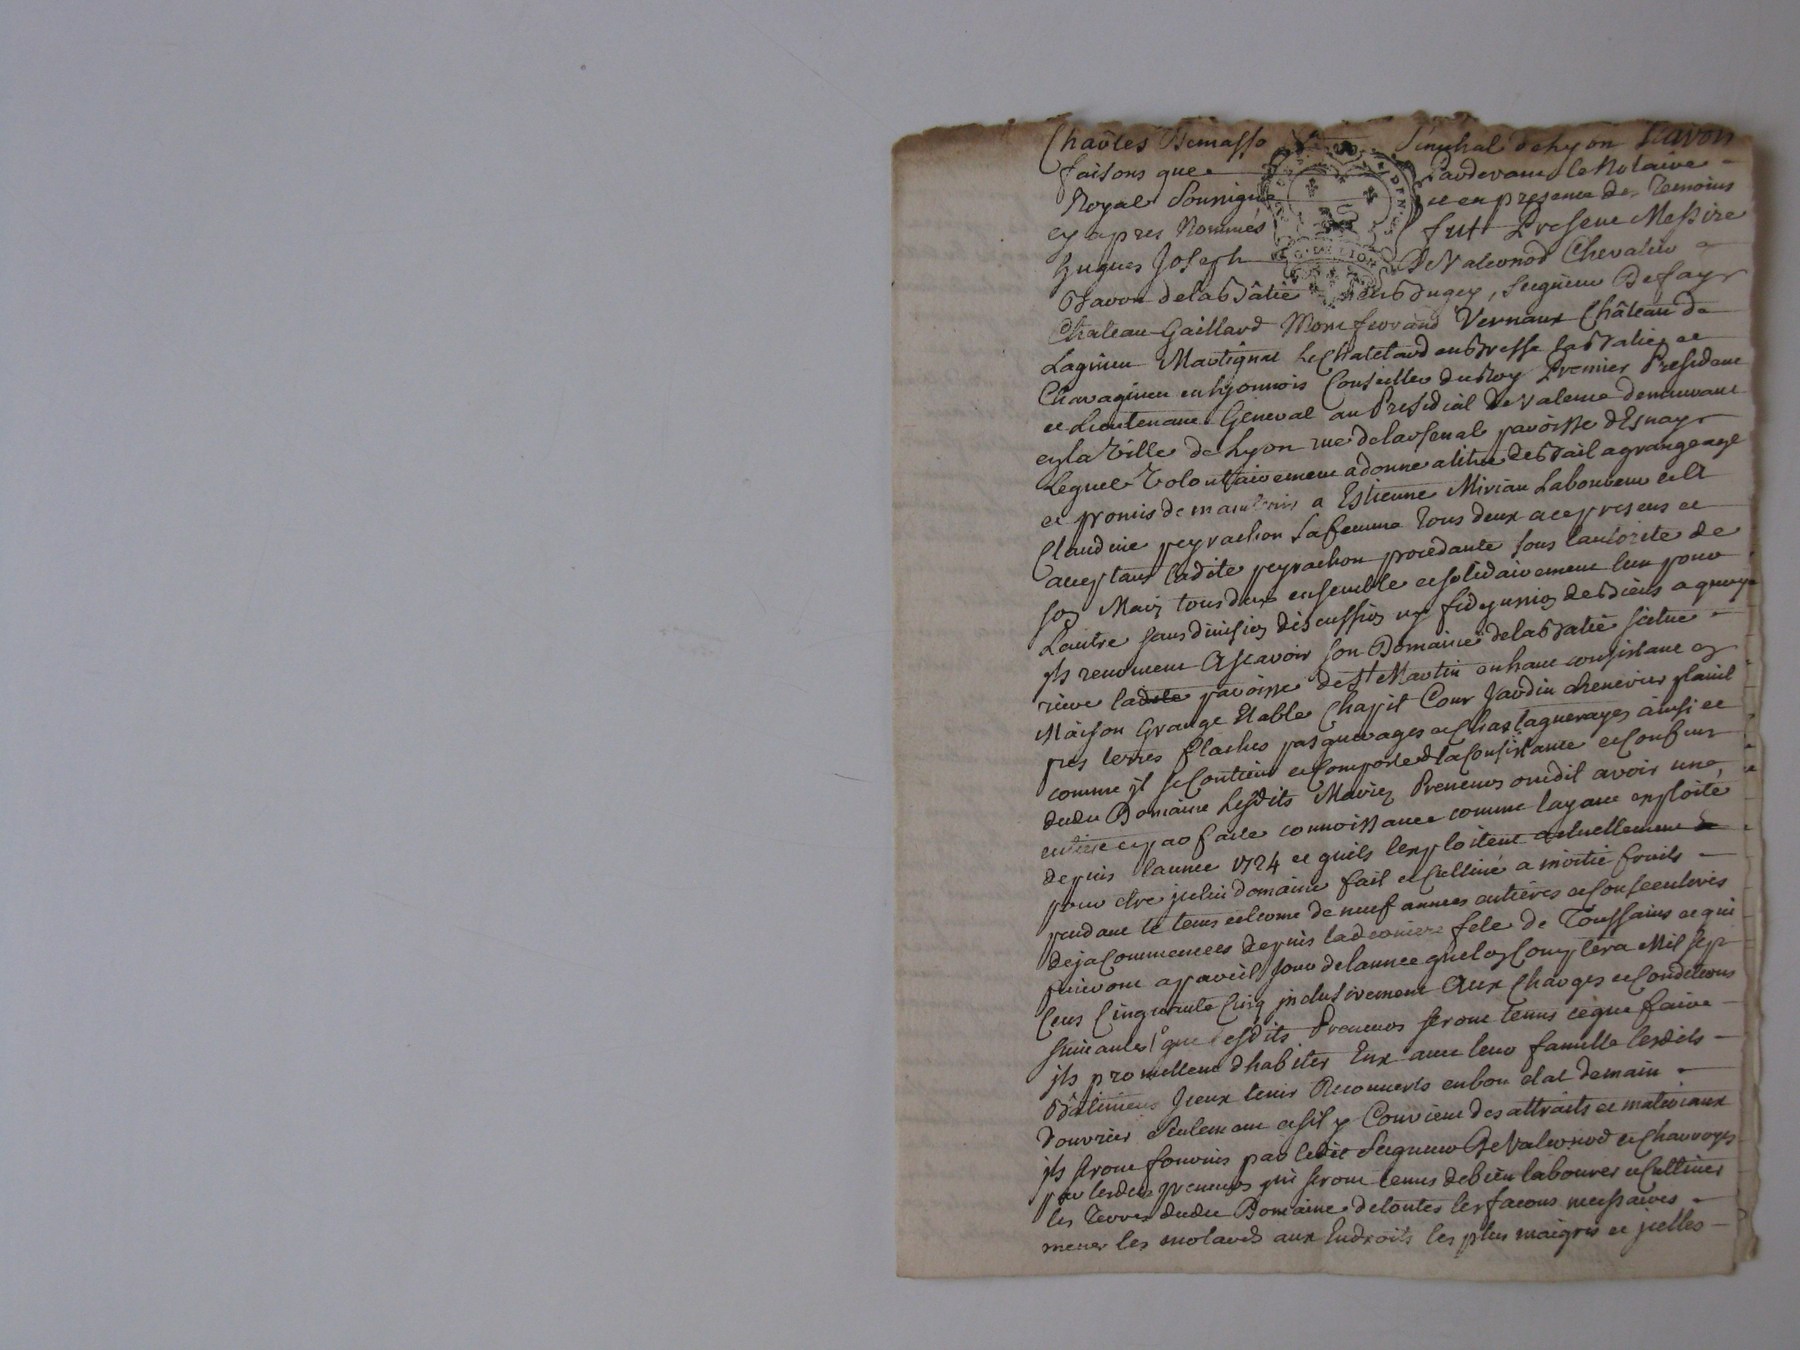 Charles Demasso Senechal de Lyon Scavoir
faisons que Pardevant le Notaire
Royal Soussigné et en presence des Temoins
cy apres Nommés fut Present Messire
hugues Joseph De Valernod Chevalier
Baron de la Bâtie en Bugey, Seigneur De fay
Chateau Gaillard Montferrand Vernaux Château de
Lagnieu Martignat Le Chatelard en Bresse la Batie et
Chavagnieu en Lyonnois Conseiller du Roy Premier President
et Lieutenant General au Presidial de Valence demeurant
en la Ville de Lyon rue de larsenal paroisse dEsnay
Lequel Volontairement a donné a titre de Bail a grangeage
et promis de maintenir a Estienne Mirian Laboureur et a
Claudine peyrachon sa femme Tous deux icy presens et
acceptans ladite peyrachon procedante sous lautorité de
son Mary tous deux ensemble et solidairement lun pour
Lautre sans division discussion ny fidejussion de Biens a quoy
ils renoncent A scavoir son Domaine de la Batie scitué
riere ladite paroisse de St Martin en haut consistant en
Maison Grange Etable Chapit Cour Jardin chenevier
pres terres flaches pasquerages et Chastagnerayes ainsi et
comme il se Contient et Comporte de la Consistance et Confins
dudit Domaine Lesdits Mariez Preneurs ont dit avoir une
entiere et parfaite connoissance comme layant exploité
depuis lannee 1724 et quils lexploitent actuellement
pour etre icelui domaine fait et Cultivé a moitié fruits
pendant le tems et terme de neuf annees entières et Consecutives
deja Commencées depuis la derniere fete de Toussaints et qui
finiront a pareil jour de lannee que lon Comptera Mil sept
Cens Cinquante Cinq inclusivement Aux Charges et Conditions
suivantes 1° que lesdits Preneurs seront tenus ce que faire
ils promettent dhabiter Eux avec leur famille lesdits
Bâtimens Iceux tenir Recouverts en bon etat de main
douvrier Seulement et sil y Convient des attraits et materiaux
ils seront fournis par ledit Seigneur De Valernod et Charroyés
par lesdits preneurs qui seront tenus de bien labourer et Cultiver
les Terres dudit Domaine de toutes les facons necessaires
mener les molards aux Endroits les plus maigres et icelles